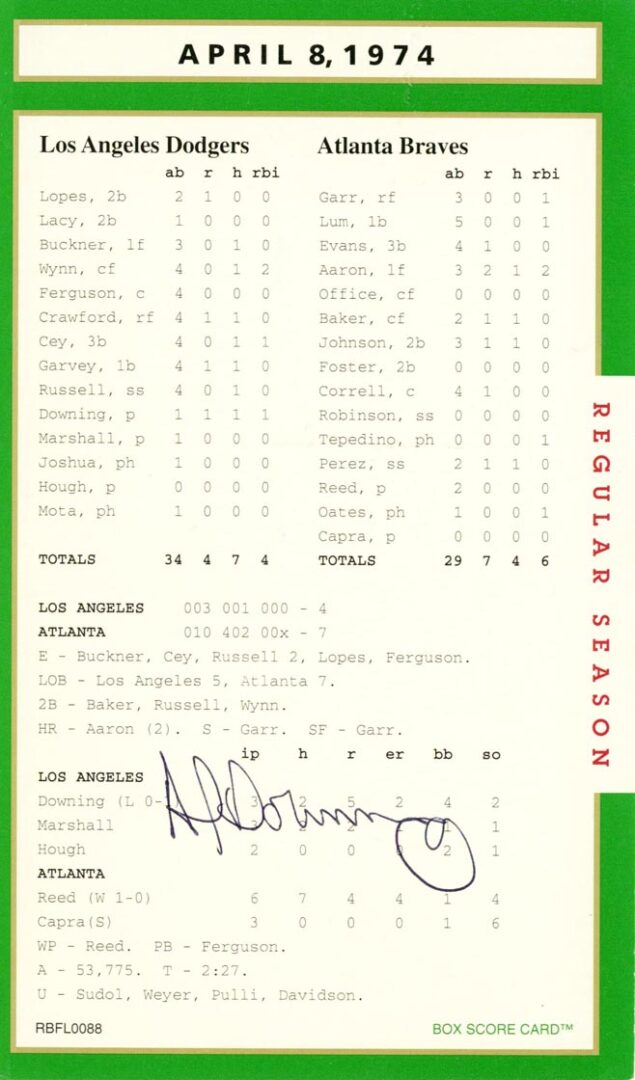 APRIL 8, 1974
Los Angeles Dodgers
ab r h rbi
Lopes, 2b 2 1 0 0
Lacy, 2b 1 0 0 0
Buckner, lf 3 0 1 0
Wynn, cf 4 0 1 2
Ferguson, c 4 0 0 0
Crawford, rf 4 1 1 0
Cey, 3b 4 0 1 1
Garvey, 1b 4 1 1 0
Russell, ss 4 0 1 0
Downing, p 1 1 1 1
Marshall, p 1 0 0 0
Joshua, ph 1 0 0 0
Hough, p 0 0 0 0
Mota, ph 1 0 0 0
TOTALS 34 4 7 4
Atlanta Braves
ab r h rbi
Garr, rf 3 0 0 1
Lum, 1b 5 0 0 1
Evans, 3b 4 1 0 0
Aaron, lf 3 2 1 2
Office, cf 0 0 0 0
Baker, cf 2 1 1 0
Johnson, 2b 3 1 1 0
Foster, 2b 0 0 0 0
Correll, c 4 1 0 0
Robinson, ss 0 0 0 0
Tepedino, ph 0 0 0 1
Perez, ss 2 1 1 0
Reed, p 2 0 0 0
Oates, ph 1 0 0 1
Capra, p 0 0 0 0
TOTALS 29 7 4 6
LOS ANGELES 003 001 000 - 4
ATLANTA 010 402 00x - 7
E - Buckner, Cey, Russell 2, Lopes, Ferguson.
LOB - Los Angeles 5, Atlanta 7.
2B - Baker, Russell, Wynn.
HR - Aaron (2). S - Garr. SF - Garr.
ip h r er bb so
LOS ANGELES
Downing (L 0- 3 2 5 2 4 2
Marshall 1 1
Hough 2 0 0 2 1
Al Downing
ATLANTA
Reed (W 1-0) 6 7 4 4 1 4
Capra(S) 3 0 0 0 1 6
WP - Reed. PB - Ferguson.
A - 53,775. T - 2:27.
U - Sudol, Weyer, Pulli, Davidson.
RBFL0088
BOX SCORE CARD™
REGULAR SEASON